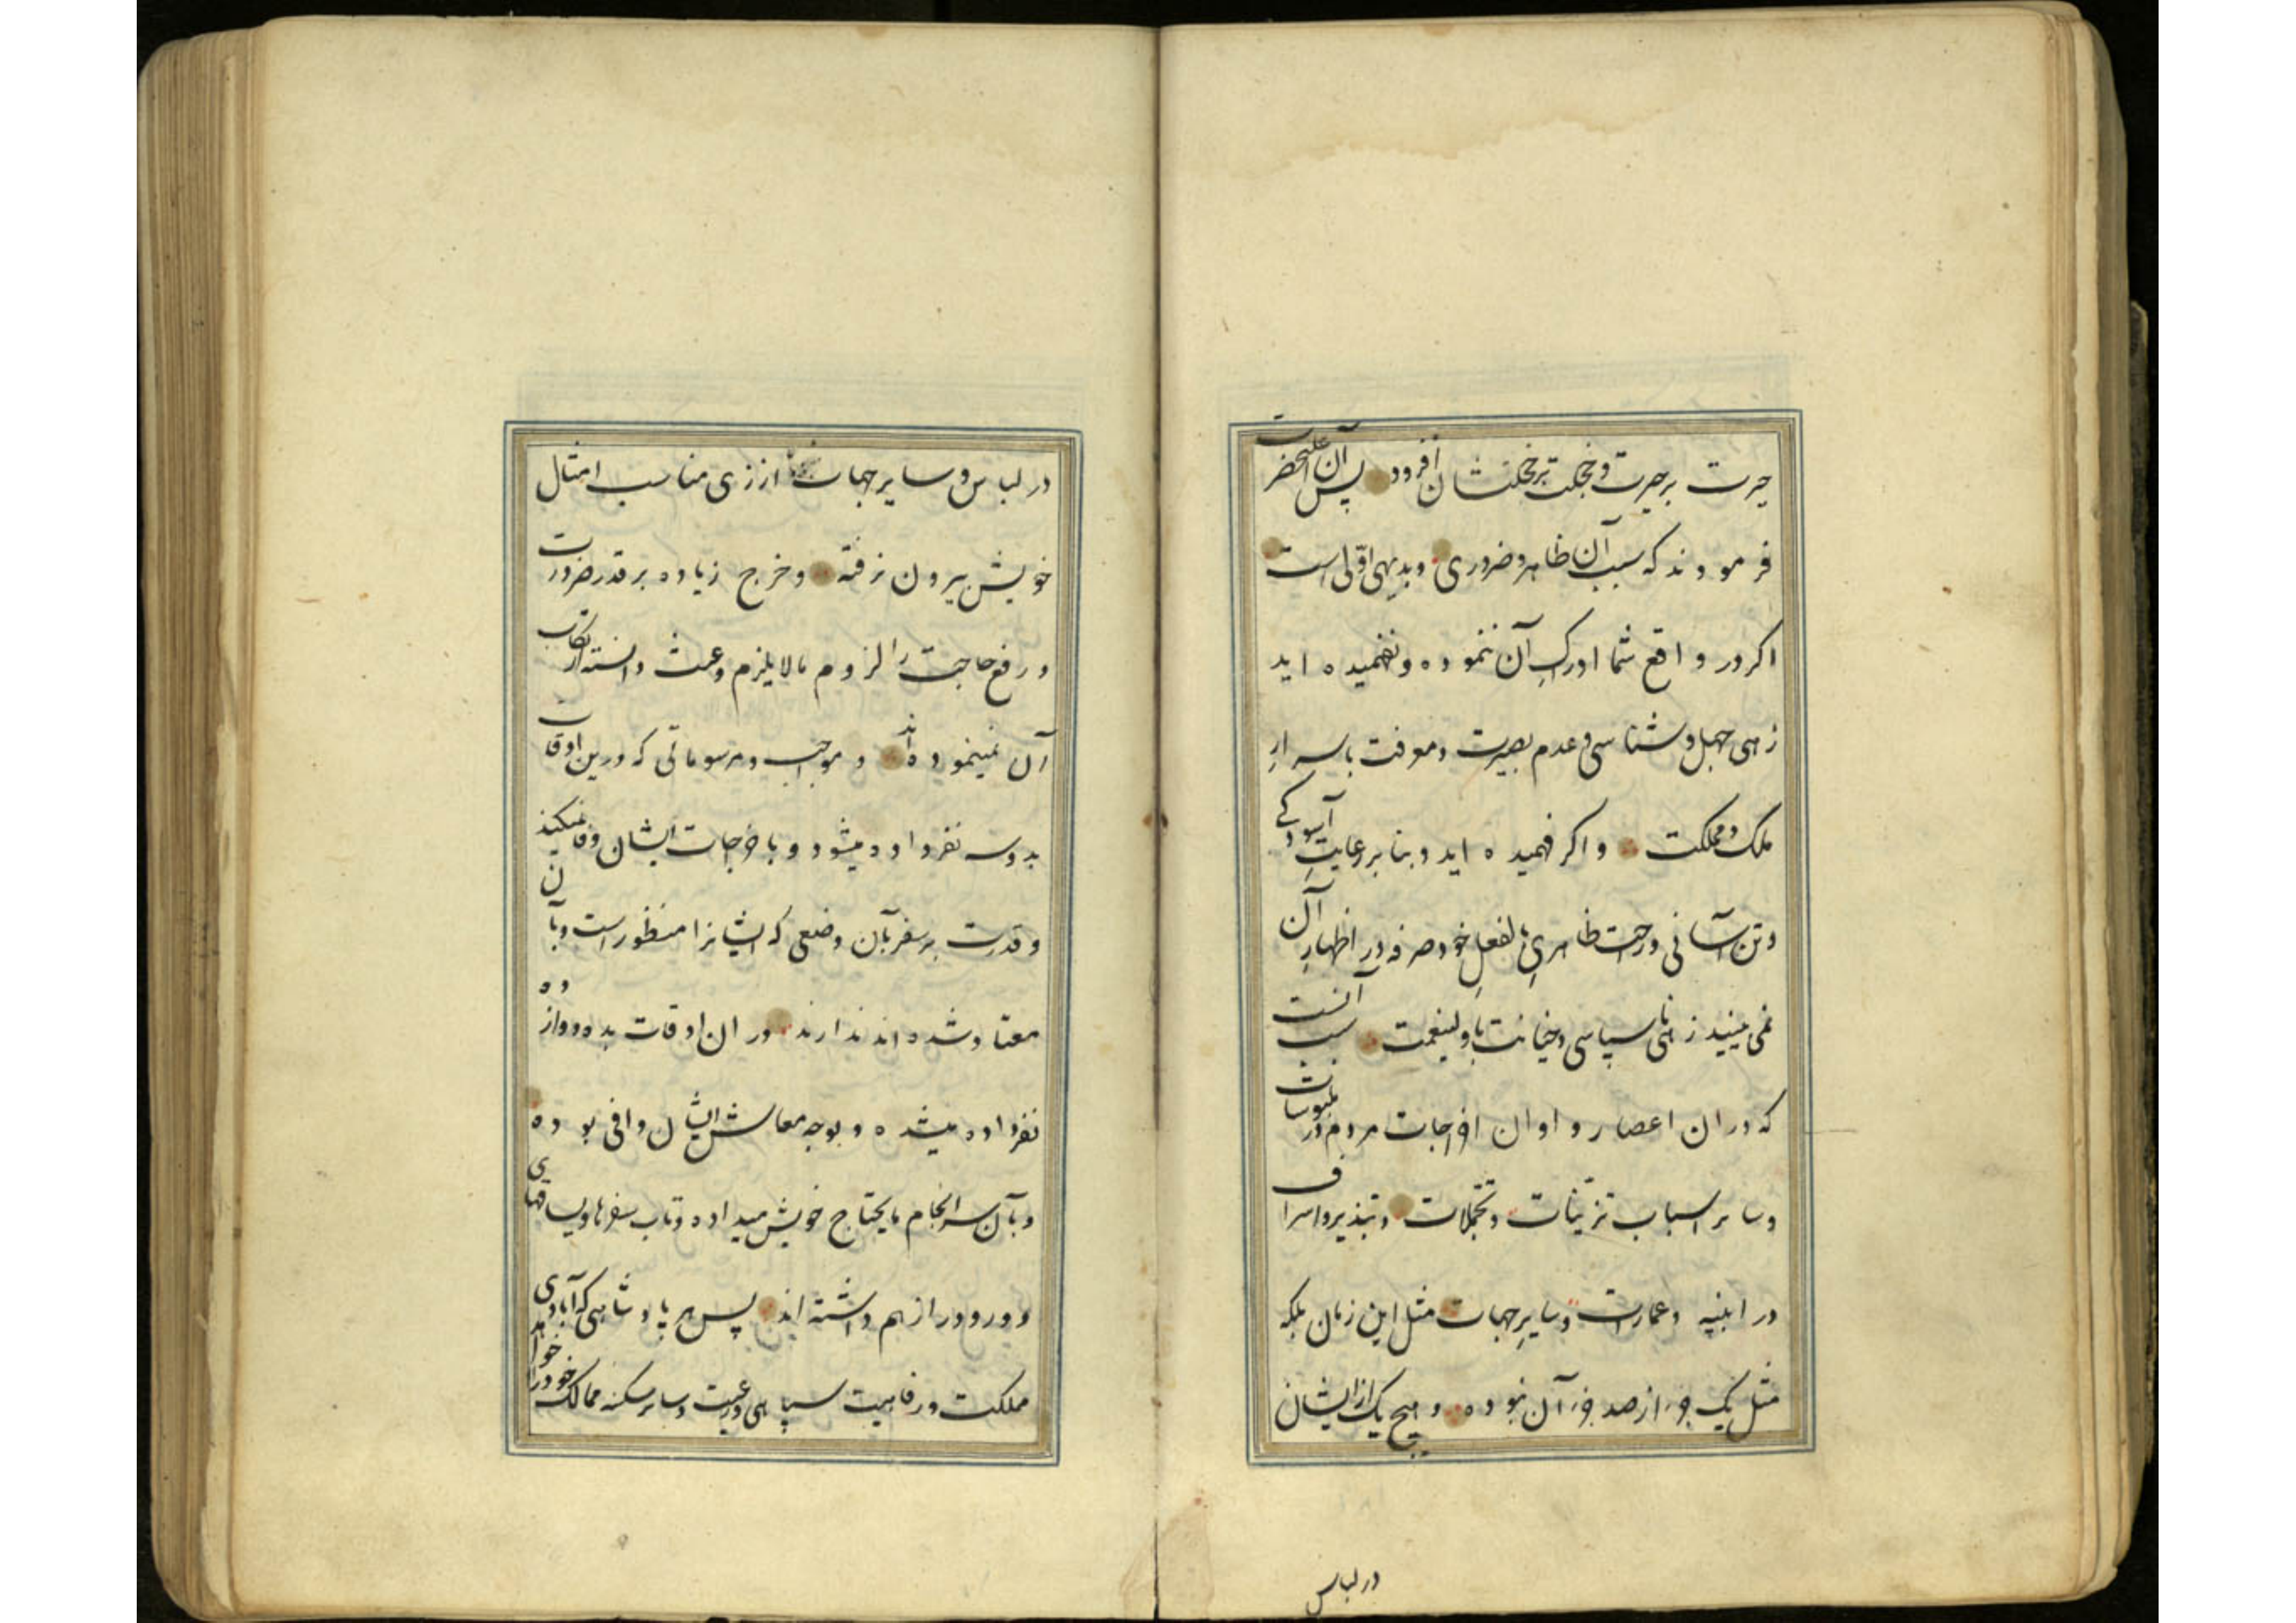 حیرت بر حیرت و خجلت بر خجلتشان افزود پس آن اعلیحضرت
فرمودند که سبب آن ظاهر و ضروری و بدیهی اوّلی است
اکر در واقع شما ادراک آن ننموده و نفهمیده اید
زهی جهل و شناسی و عدم بصیرت و معرفت باسرارِ
ملک و مملکت و اکر فهمیده اید و بنا بر رعایتِ آسودکی
و تن آسانی و راحت ظاهریِ بالفعلِ خود صرفه در اظهارِ آن
نمی بینید زهی ناسپاسی و خیانت با ولینعمت سبب آنست
که در ان اعصار و اوان اخراجات مردم در ملبوسات
و سایر اسباب تزیّنات و تجملات و تبذیر و اسراف
در ابنیه و عمارات و سایرِ جهات مثل این زمان بلکه
مثل یک جزء از صد جزء آن نبوده و هیچ یک از ایشان
در لباس
در لباس و سایر جهات از زی مناسب امثال
خویش بیرون نرفته و خرج زیاده بر قدر ضرورت
و رفع حاجت را لزوم مالایلزم و عبث دانسته ارتکاب
آن نمینموده اند و مواجب و مرسوماتی که درین اوقات
بدو سه نفر داده میشود و باخراجات ایشان وفا نمیکند
و قدرت بر سفر بآن وضعی که ایشانرا منظور است و بآن
معتاد شده اند ندارند در ان اوقات بده دوازده
نفر داده میشده و بوجه معاش ایشان وافی بوده
و بآن سرانجام مایحتاج خویش میداده و تاب سفرها و یساقهای
دور و دراز هم داشته اند پس هر پادشاهی که آبادی
مملکت و رفاهیت سپاهی و رعیت و سایر سکنه ممالک خود را خواهد